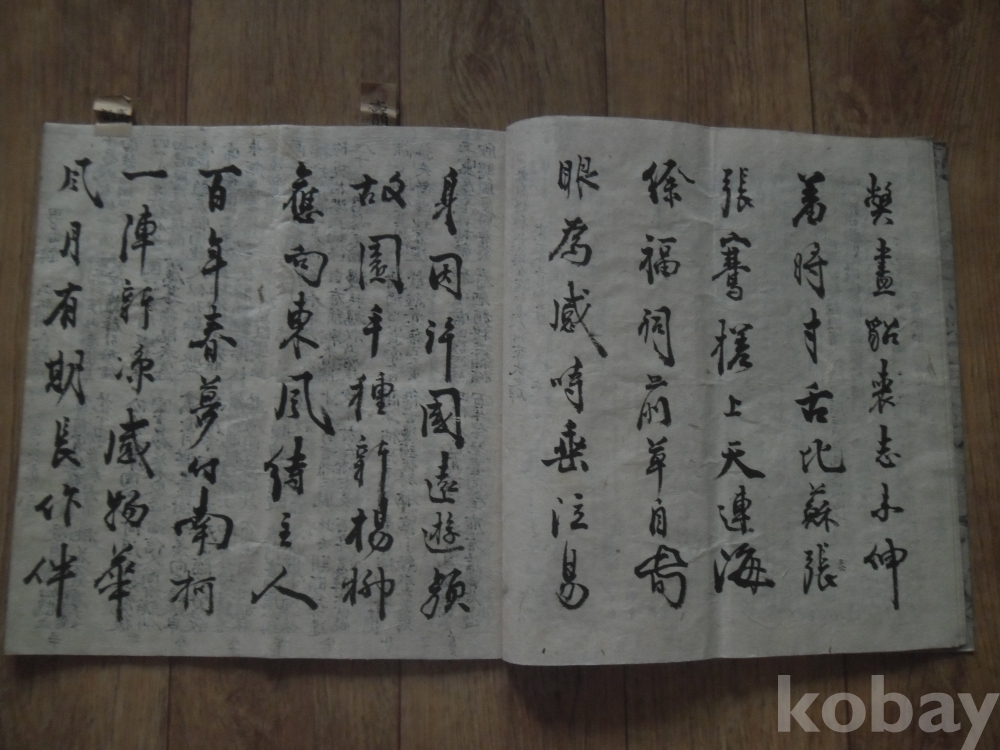 獘盡貂裘志未伸
羞將寸舌比蘇張
張騫槎上天連海
徐福祠前草自春
眼為感時垂泣易
身因許國遠遊頻
故園手種新楊柳
應向東風待主人
百年春夢付南柯
一陣新凉感物華
風月有期長作伴
kobay